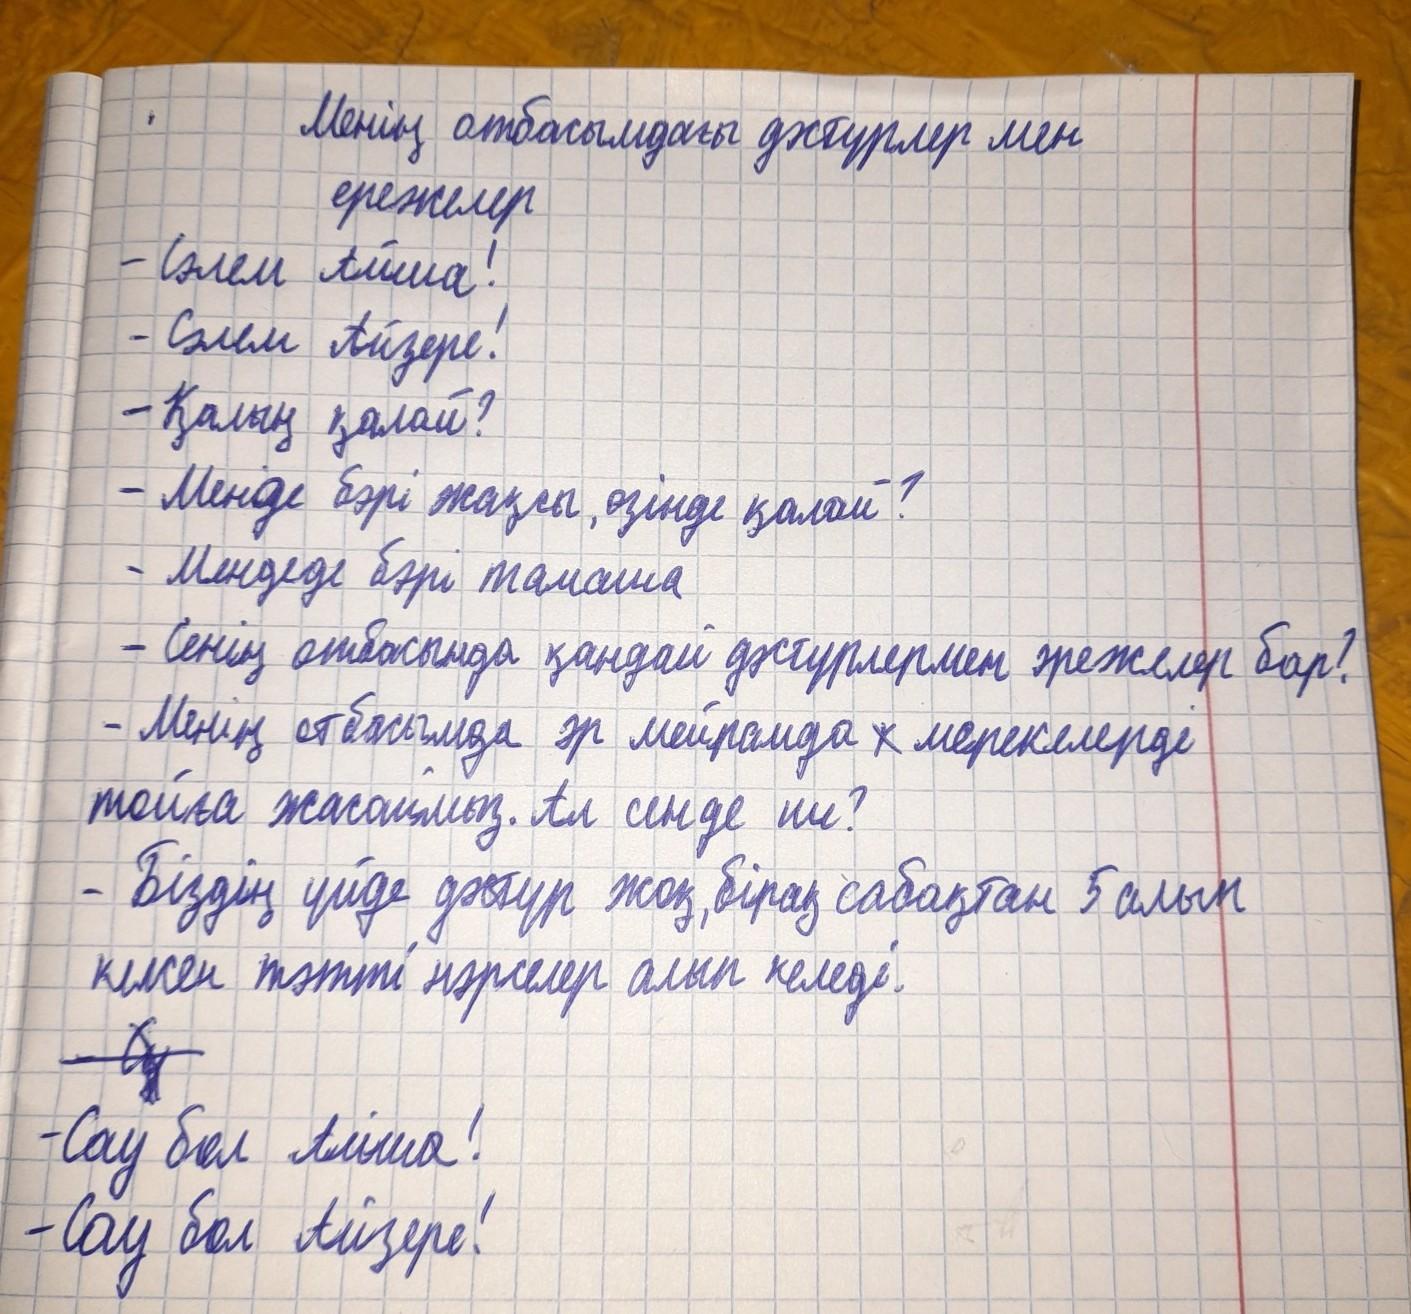 Менің отбасымдағы дәстүрлер мен
ережелер
- Сәлем Айша!
- Сәлем Айзере!
- Қалың қалай?
- Меніде бәрі жақсы, өзінде қалай?
- Мендеде бәрі тамаша
- Сенің отбасында қандай дәстүрлермен эрежелер бар?
- Менің отбасымда әр мейрамда х мерекелерді
тойға жасаймыз. Ал сенде ши?
- Біздің үйде дәстүр жоқ, бірақ сабақтан 5 алып
келсен тәтті нәрселер алып келеді.
- Сау бол Айша!
- Сау бол Айзере!